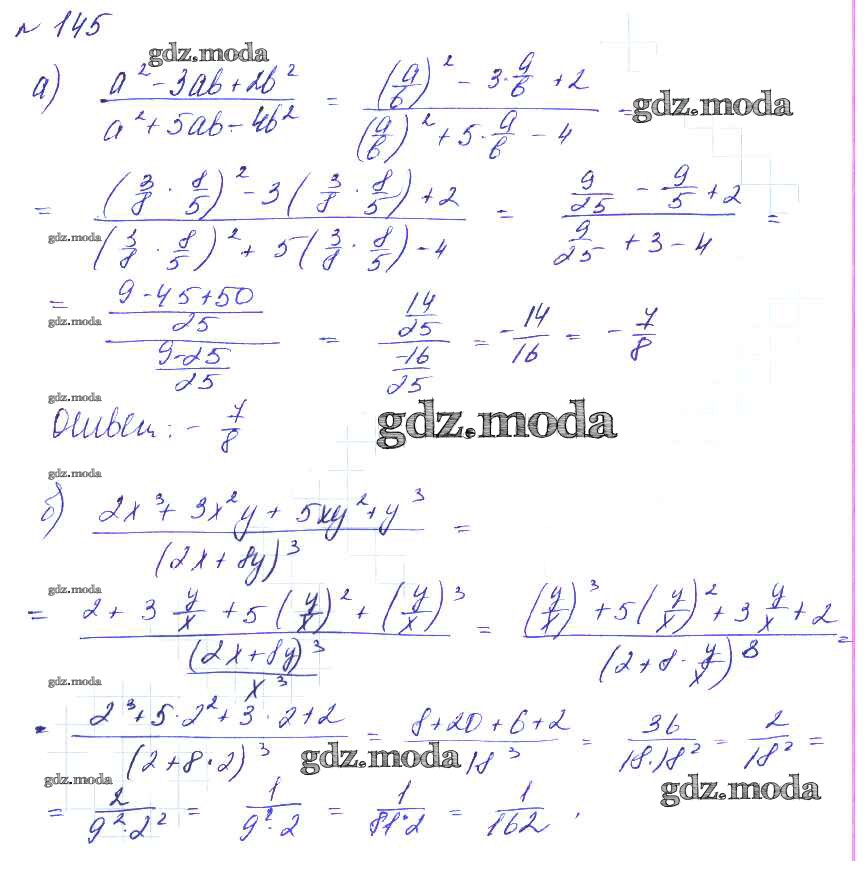 № 145
gdz.moda
а) (a² - 3ab + 2b²)/(a² + 5ab - 4b²) = ((a/b)² - 3·a/b + 2)/((a/b)² + 5·a/b - 4) =
gdz.moda
= ((3/8 · 8/5)² - 3(3/8 · 8/5) + 2)/((3/8 · 8/5)² + 5(3/8 · 8/5) - 4) = (9/25 - 9/5 + 2)/(9/25 + 3 - 4) =
gdz.moda
= ((9-45+50)/25)/((9-25)/25) = (14/25)/(-16/25) = -14/16 = -7/8
gdz.moda
gdz.moda
Ответ: - 7/8
gdz.moda
gdz.moda
б) (2x³ + 3x²y + 5xy² + y³)/(2x + 8y)³ =
gdz.moda
= (2 + 3 y/x + 5(y/x)² + (y/x)³)/((2x+8y)³/x³) = ((y/x)³ + 5(y/x)² + 3 y/x + 2)/(2 + 8·y/x)³ =
gdz.moda
= (2³ + 5·2² + 3·2 + 2)/(2+8·2)³ = (8+20+6+2)/18³ = 36/(18·18²) = 2/18² =
gdz.moda
gdz.moda
gdz.moda
= 2/(9²·2²) = 1/(9²·2) = 1/(81·2) = 1/162 .